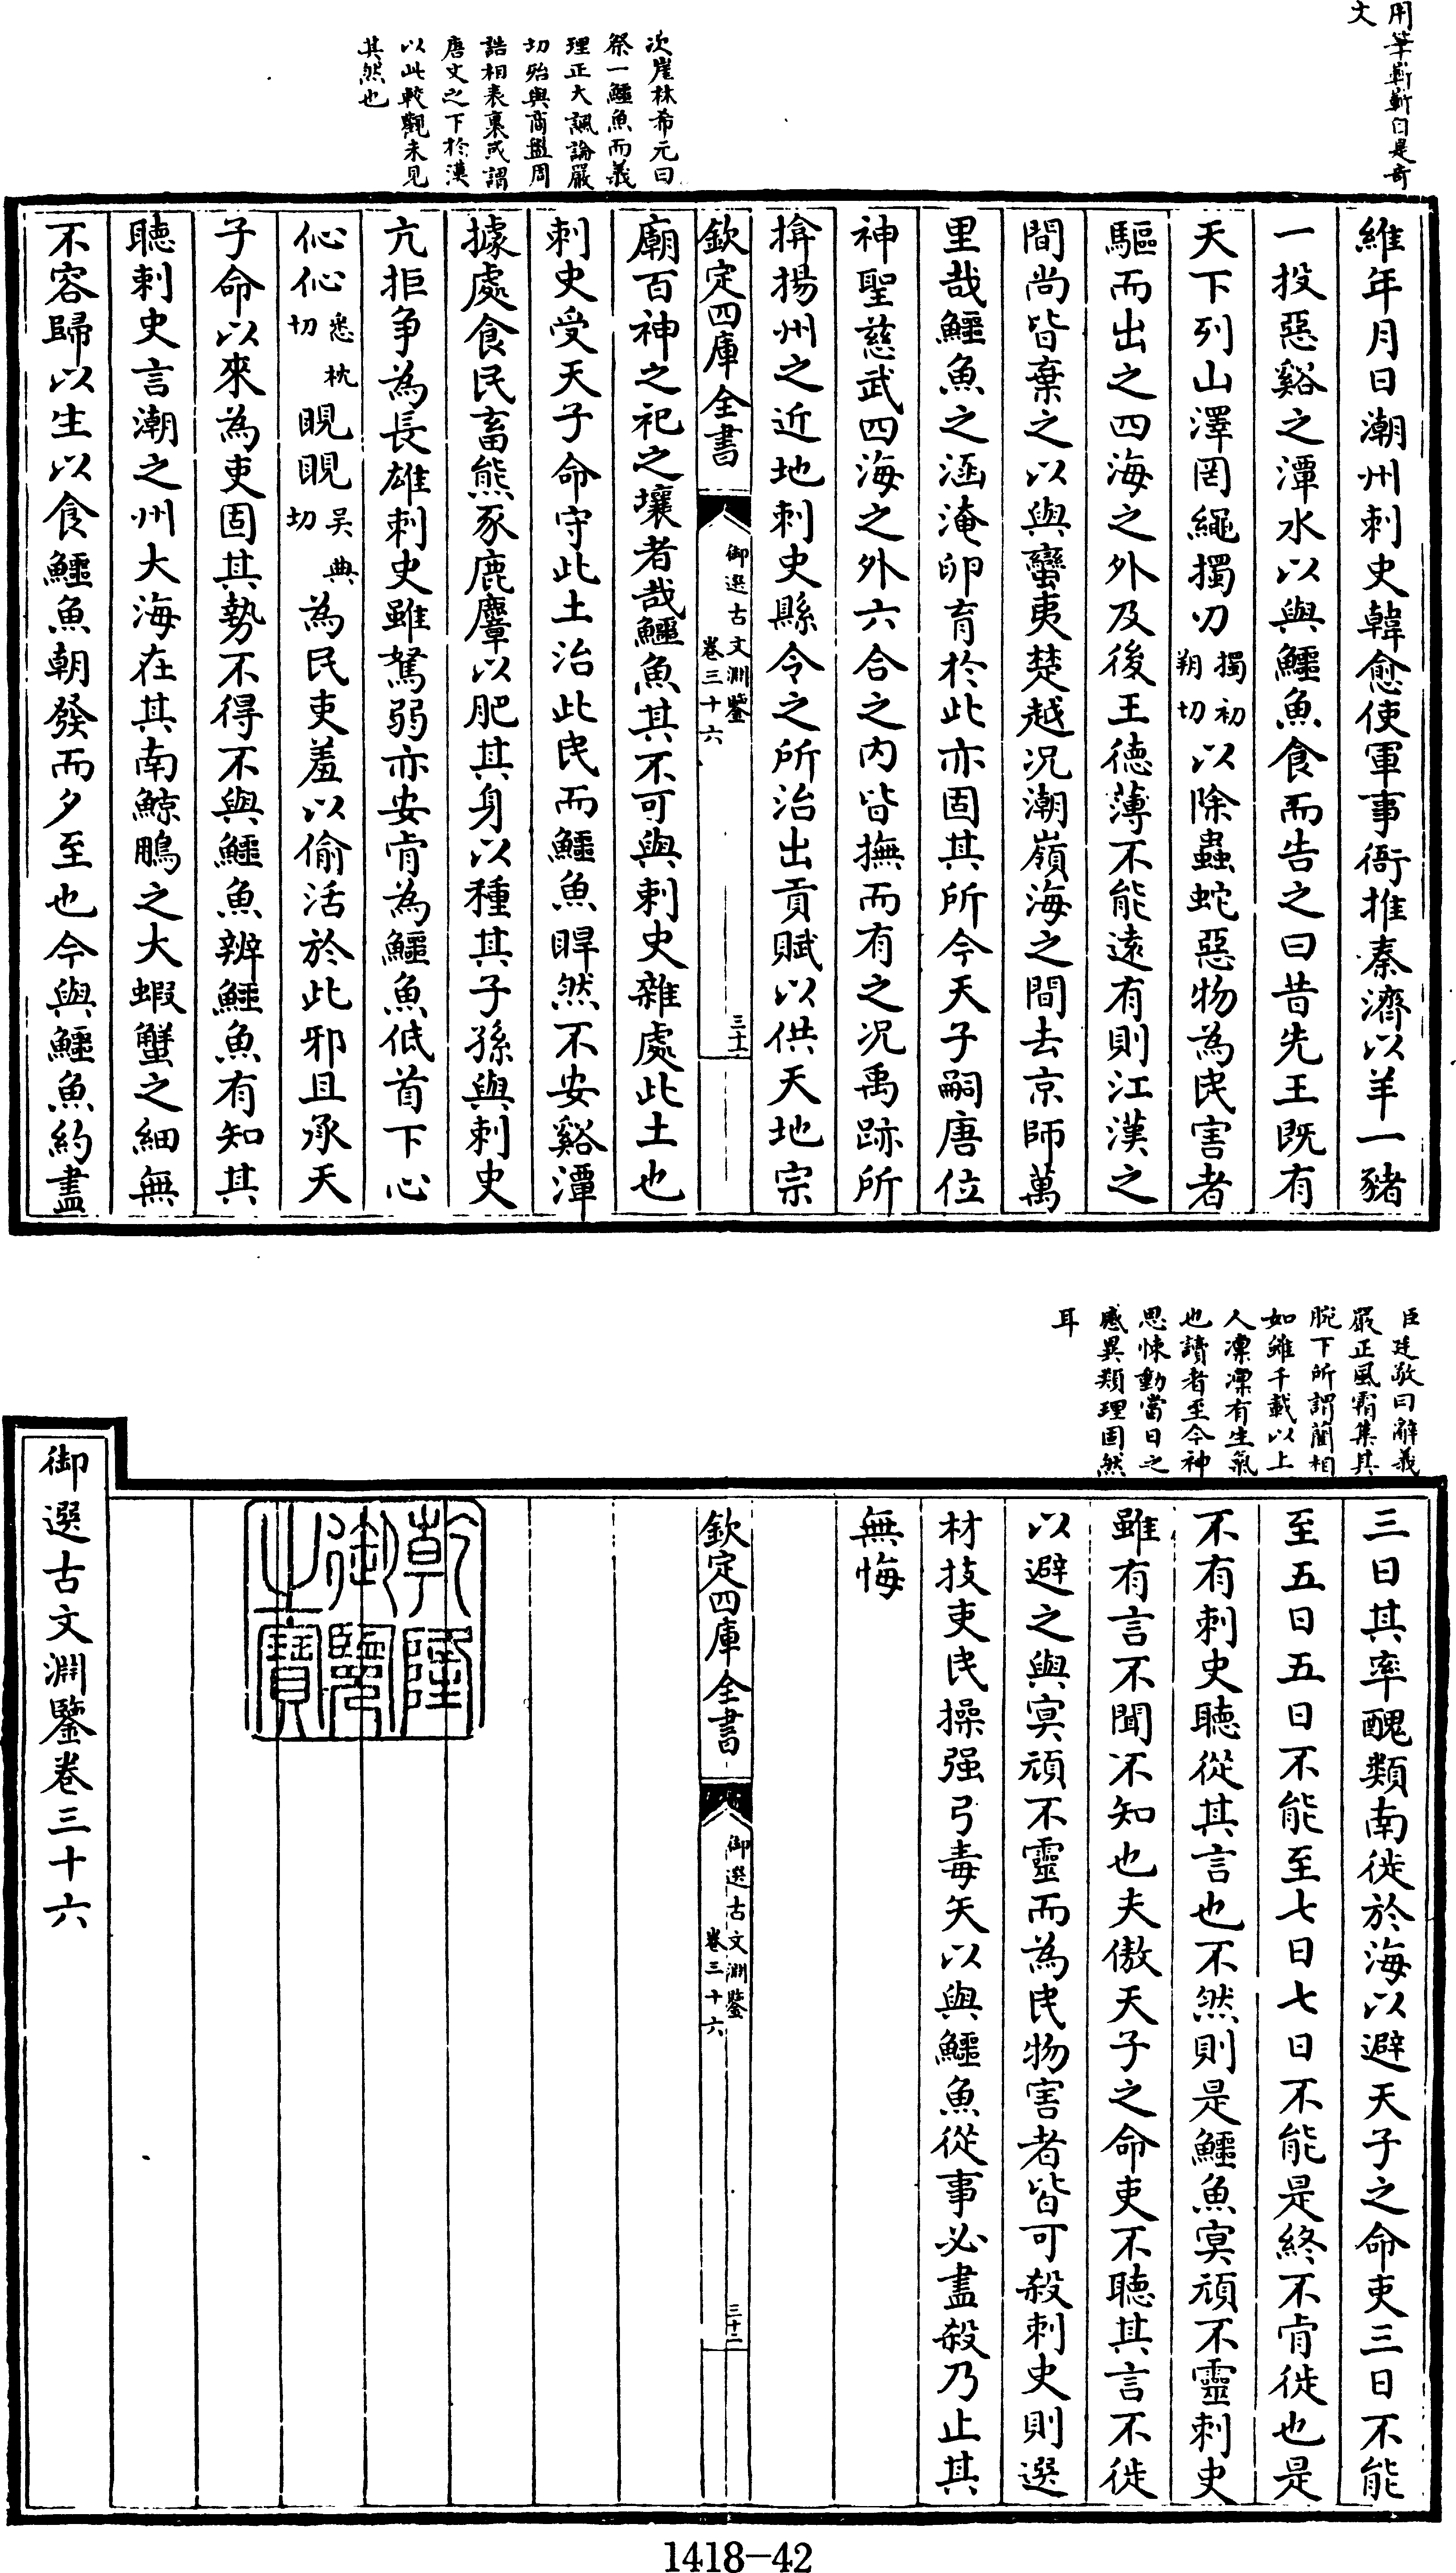 用筆嶄嶄自是奇
文
次崖林希元曰
祭一鱷魚而義
理正大諷論嚴
切殆與商盤周
誥相表裏或謂
唐文之下於漢
以此較觀未見
其然也
維年月日潮州刺史韓愈使軍事衙推秦濟以羊一豬
一投惡谿之潭水以與鱷魚食而告之曰昔先王既有
天下列山澤罔繩擉刃擉初朔切以除蟲蛇惡物為民害者
驅而出之四海之外及後王德薄不能遠有則江漢之
間尚皆棄之以與蠻夷楚越况潮嶺海之間去京師萬
里哉鱷魚之涵淹卵育於此亦固其所今天子嗣唐位
神聖慈武四海之外六合之内皆撫而有之况禹跡所
揜揚州之近地刺史縣令之所治出貢賦以供天地宗
欽定四庫全書
御選古文淵鑒
卷三十六
三十一
廟百神之祀之壤者哉鱷魚其不可與刺史雜處此土也
刺史受天子命守此土治此民而鱷魚睅然不安谿潭
據處食民畜熊豕鹿麞以肥其身以種其子孫與刺史
亢拒争為長雄刺史雖駑弱亦安肯為鱷魚低首下心
伈伈悉枕切睍睍吳典切為民吏羞以偷活於此邪且承天
子命以來為吏固其勢不得不與鱷魚辨鱷魚有知其
聽刺史言潮之州大海在其南鯨鵬之大蝦蟹之細無
不容歸以生以食鱷魚朝發而夕至也今與鱷魚約盡
臣廷敬曰辭義
嚴正風霜集其
腕下所謂藺相
如雖千載以上
人凜凜有生氣
也讀者至今神
思悚動當日之
感異類理固然
耳
三日其率醜類南徙於海以避天子之命吏三日不能
至五日五日不能至七日七日不能是終不肯徙也是
不有刺史聽從其言也不然則是鱷魚冥頑不靈刺史
雖有言不聞不知也夫傲天子之命吏不聽其言不徙
以避之與冥頑不靈而為民物害者皆可殺刺史則選
材技吏民操强弓毒矢以與鱷魚從事必盡殺乃止其
無悔
欽定四庫全書
御選古文淵鑒
卷三十六
三十二
乾隆
御覽
之寶
御選古文淵鑒卷三十六
1418-42